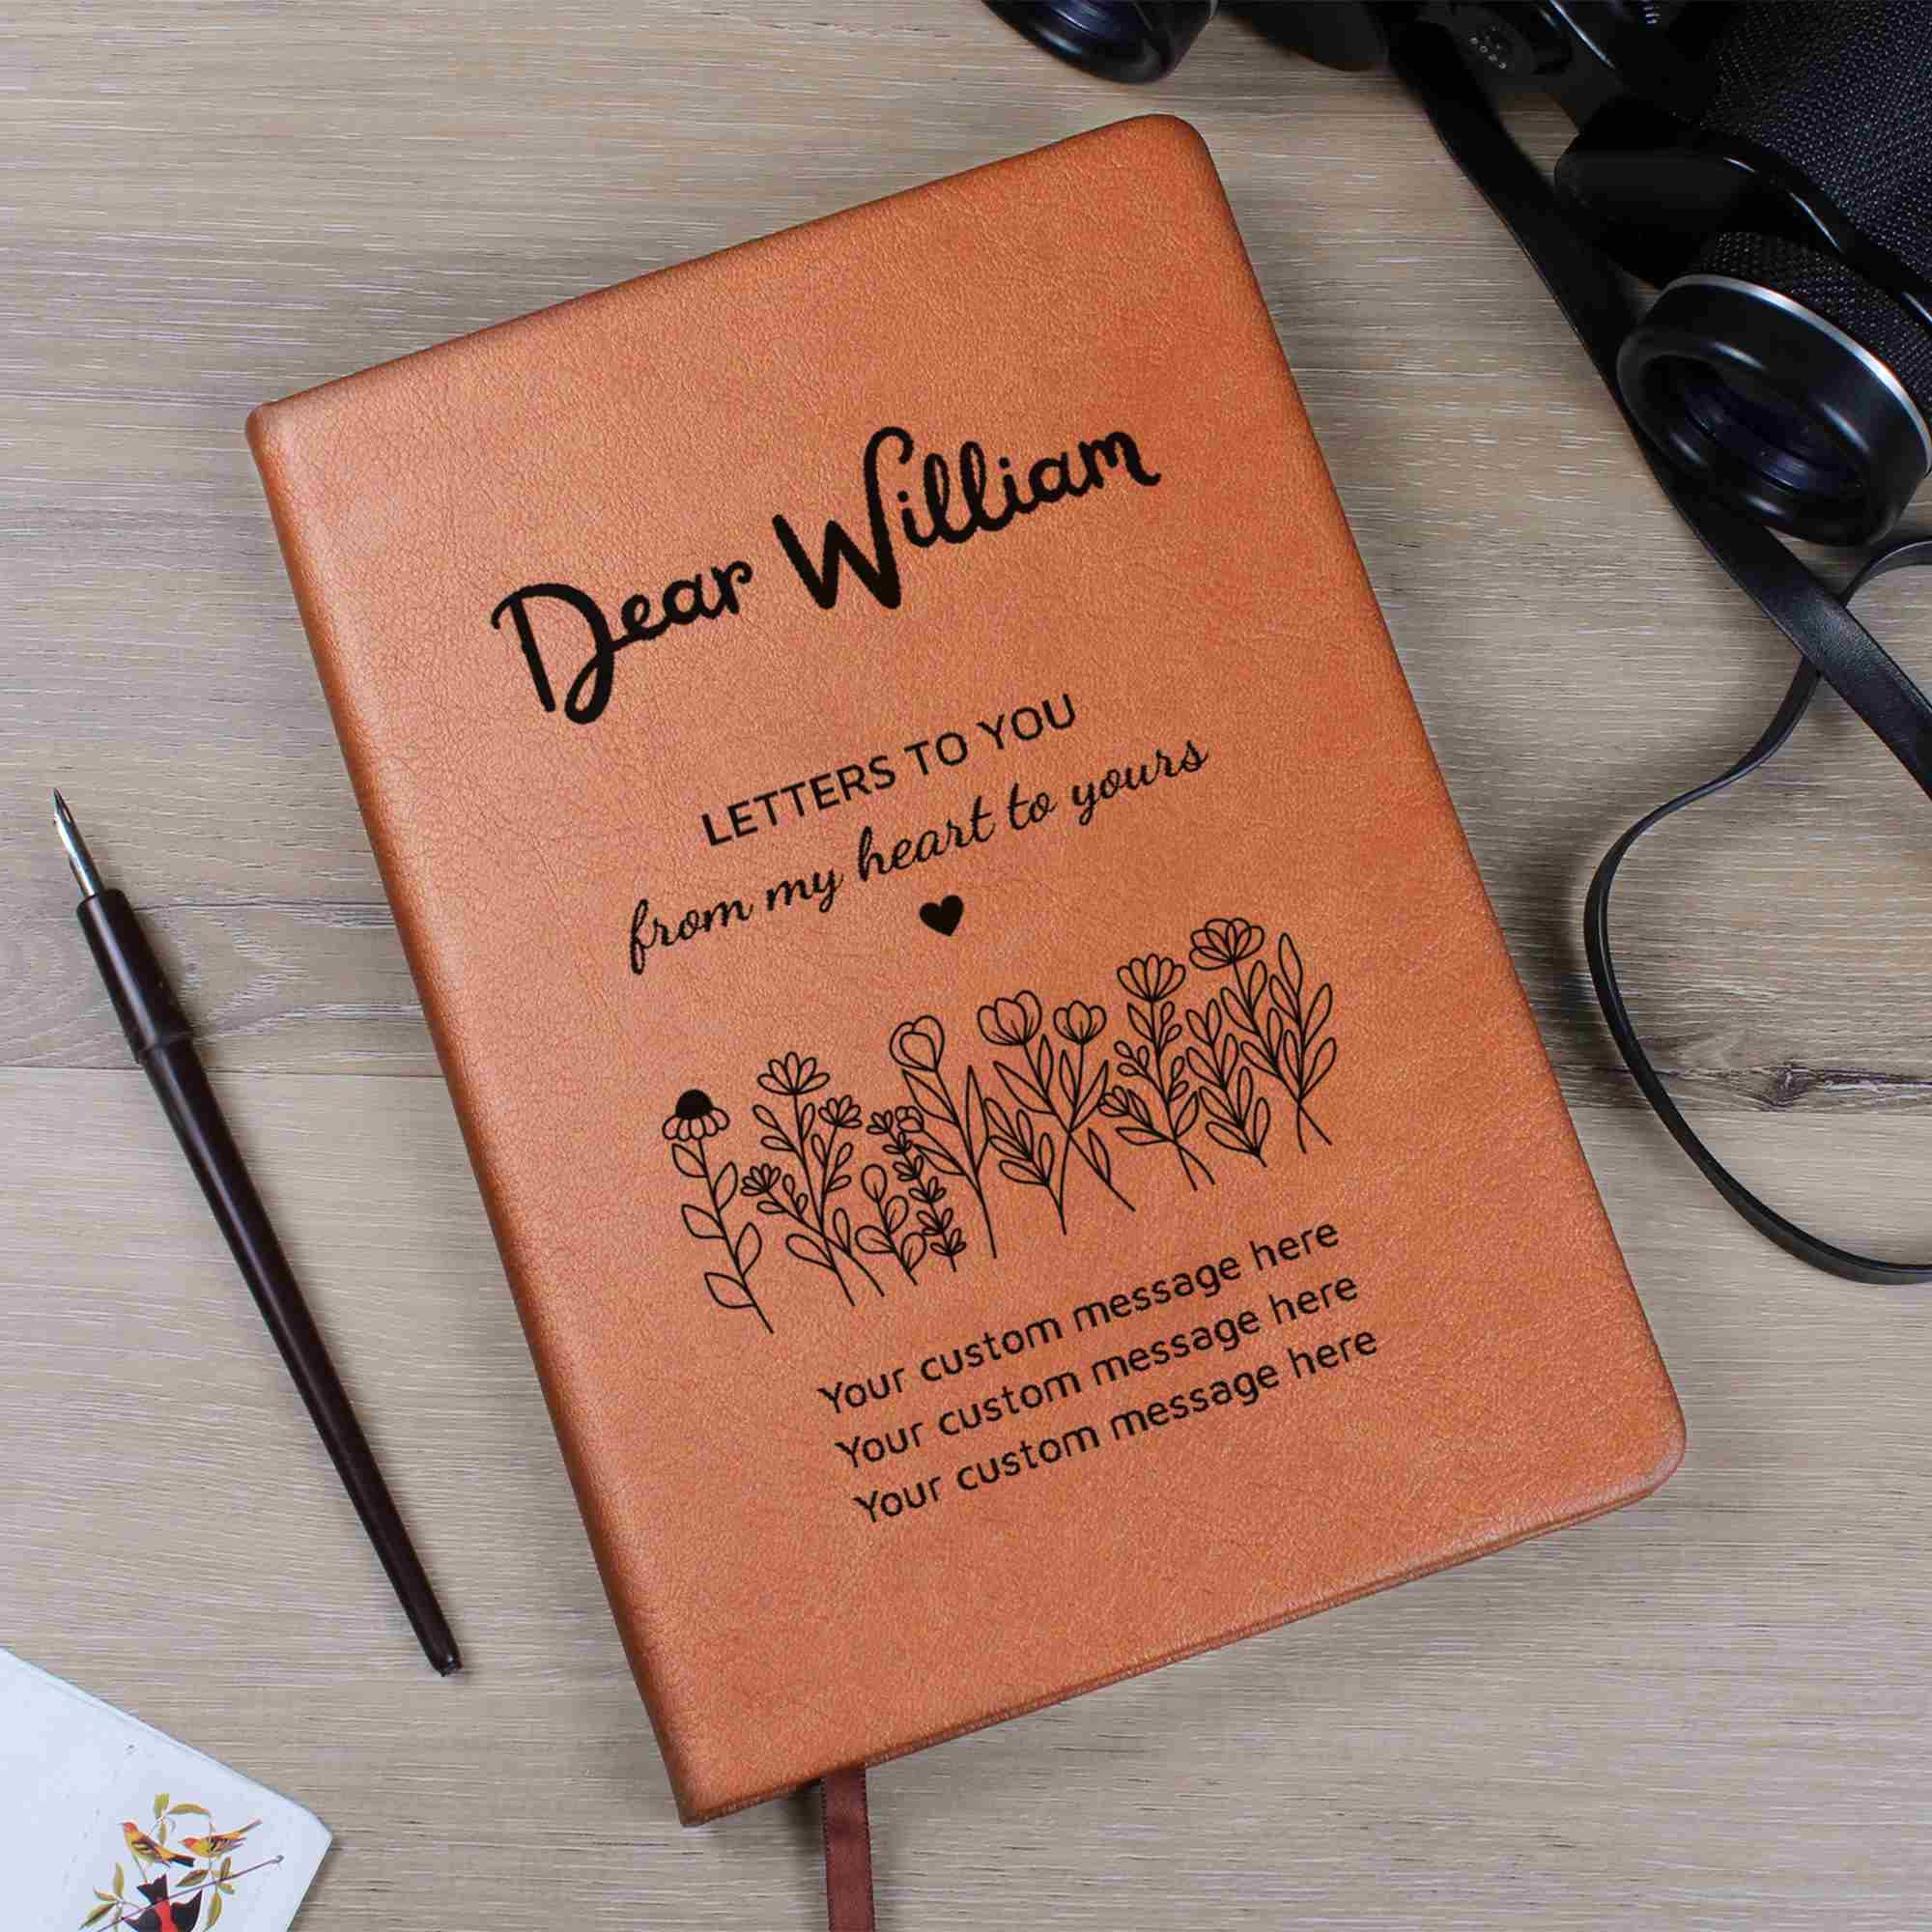 Dear William
LETTERS TO YOU
from my heart to yours
Your custom message here
Your custom message here
Your custom message here